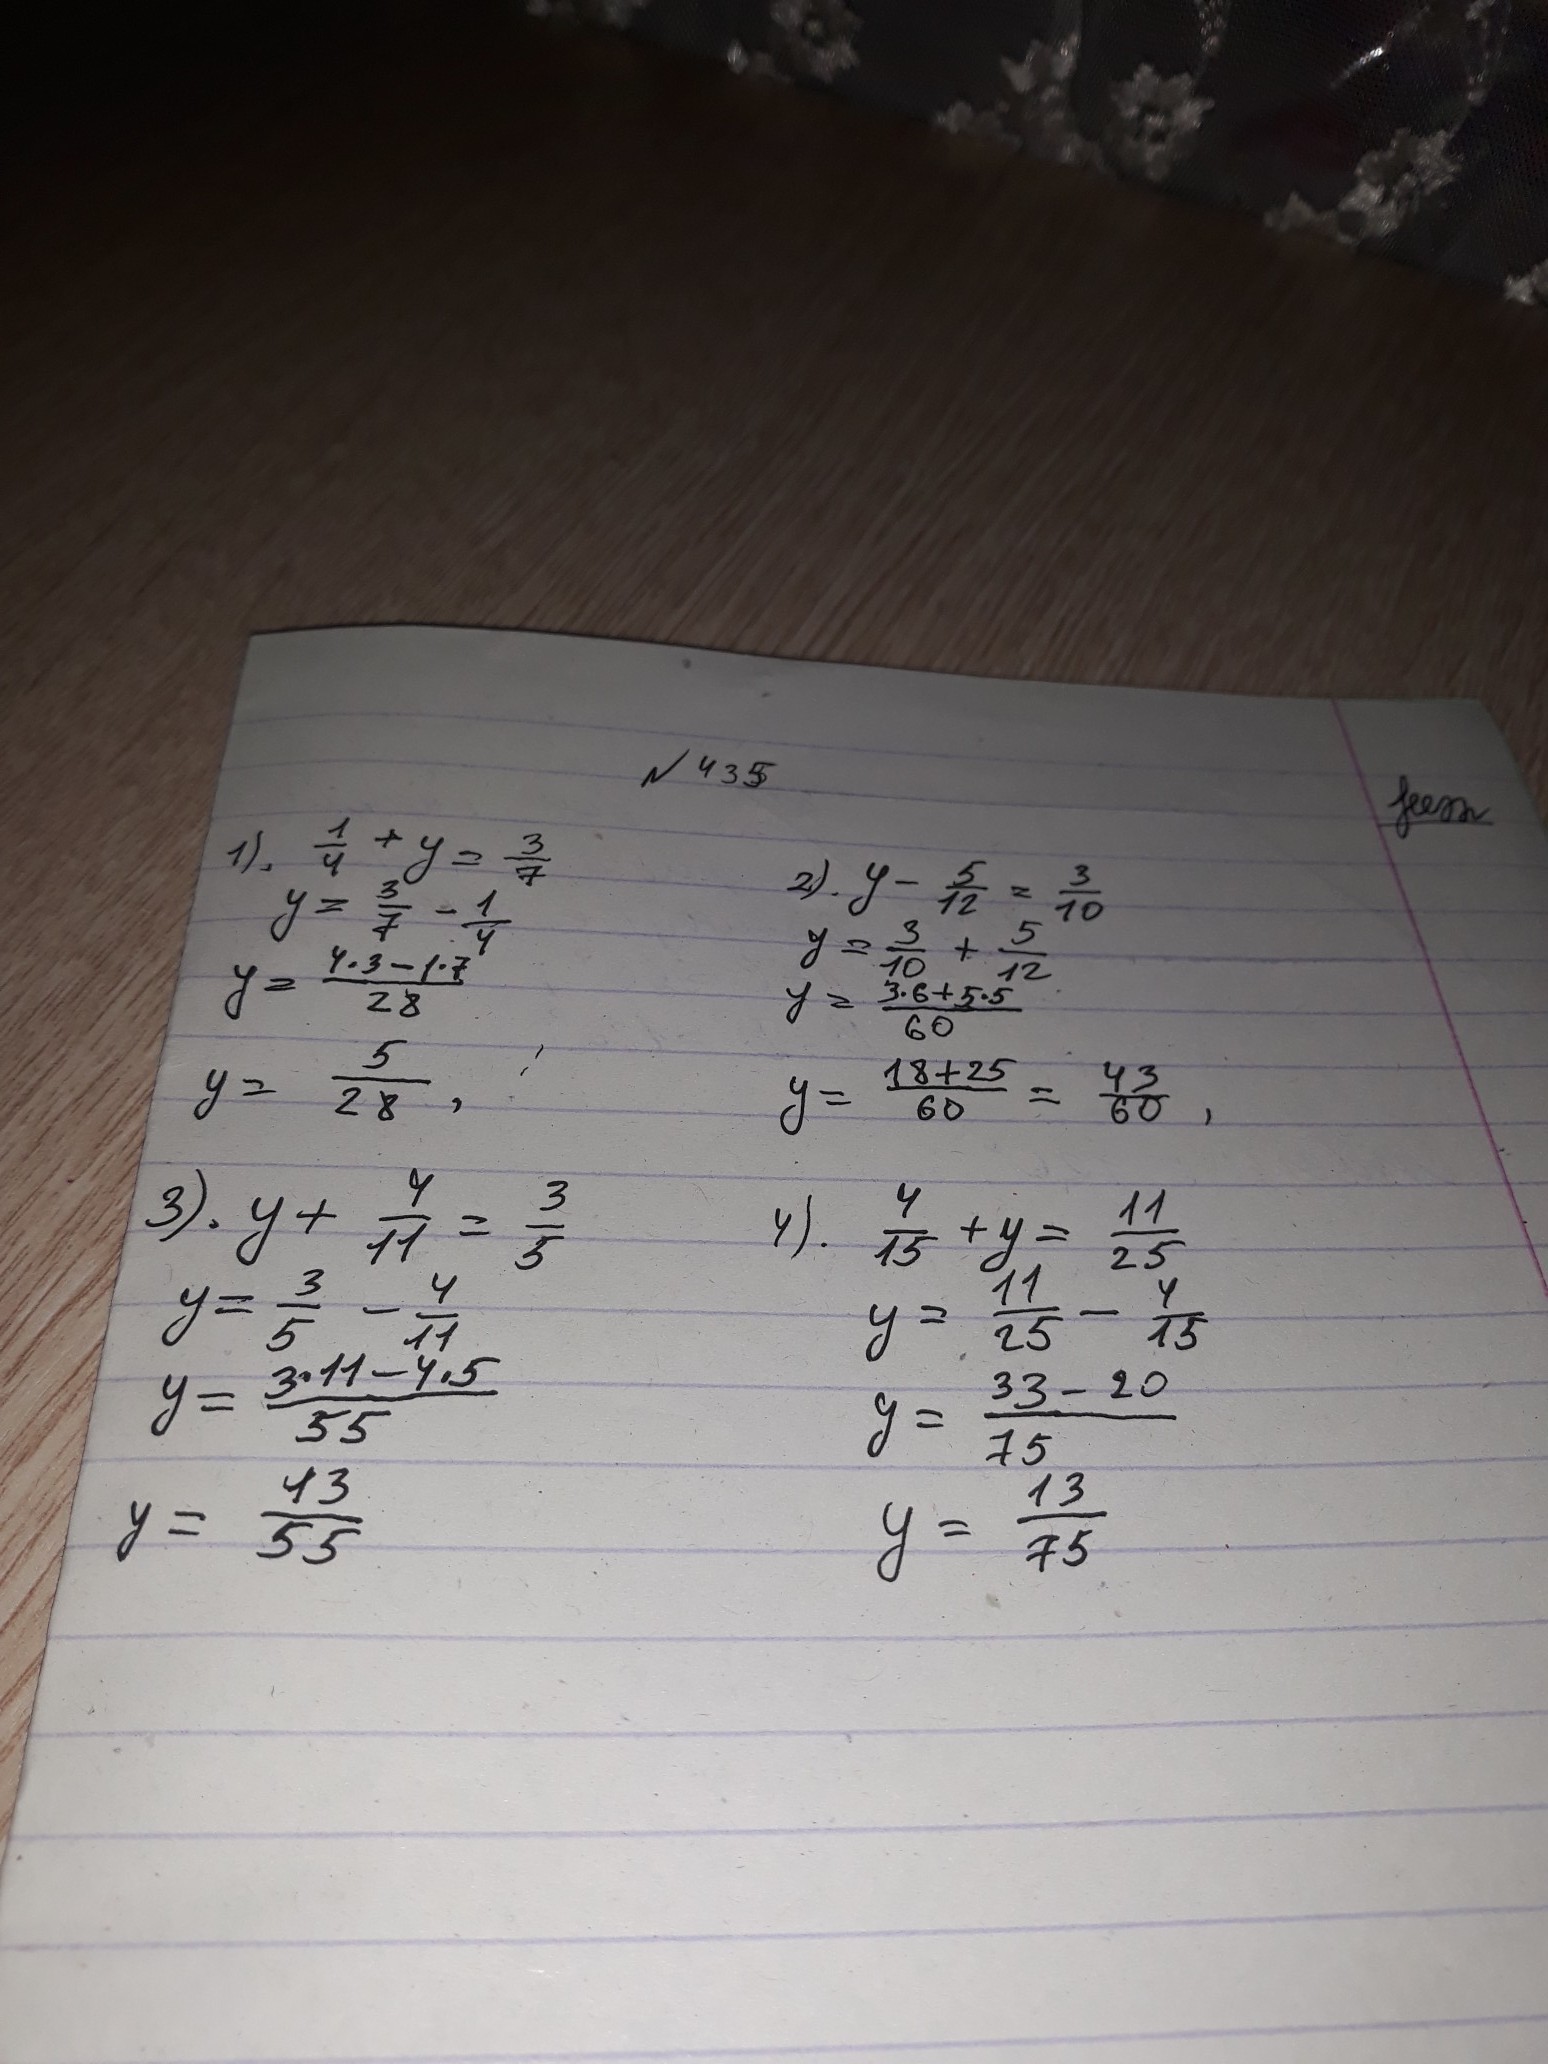 № 435
1). 1/4 + y = 3/7
y = 3/7 - 1/4
y = 4·3-1·7/28
y = 5/28,
2). y - 5/12 = 3/10
y = 3/10 + 5/12
y = 3·6+5·5/60
y = 18+25/60 = 43/60,
3). y + 4/11 = 3/5
y = 3/5 - 4/11
y = 3·11-4·5/55
y = 13/55
4). 4/15 + y = 11/25
y = 11/25 - 4/15
y = 33-20/75
y = 13/75